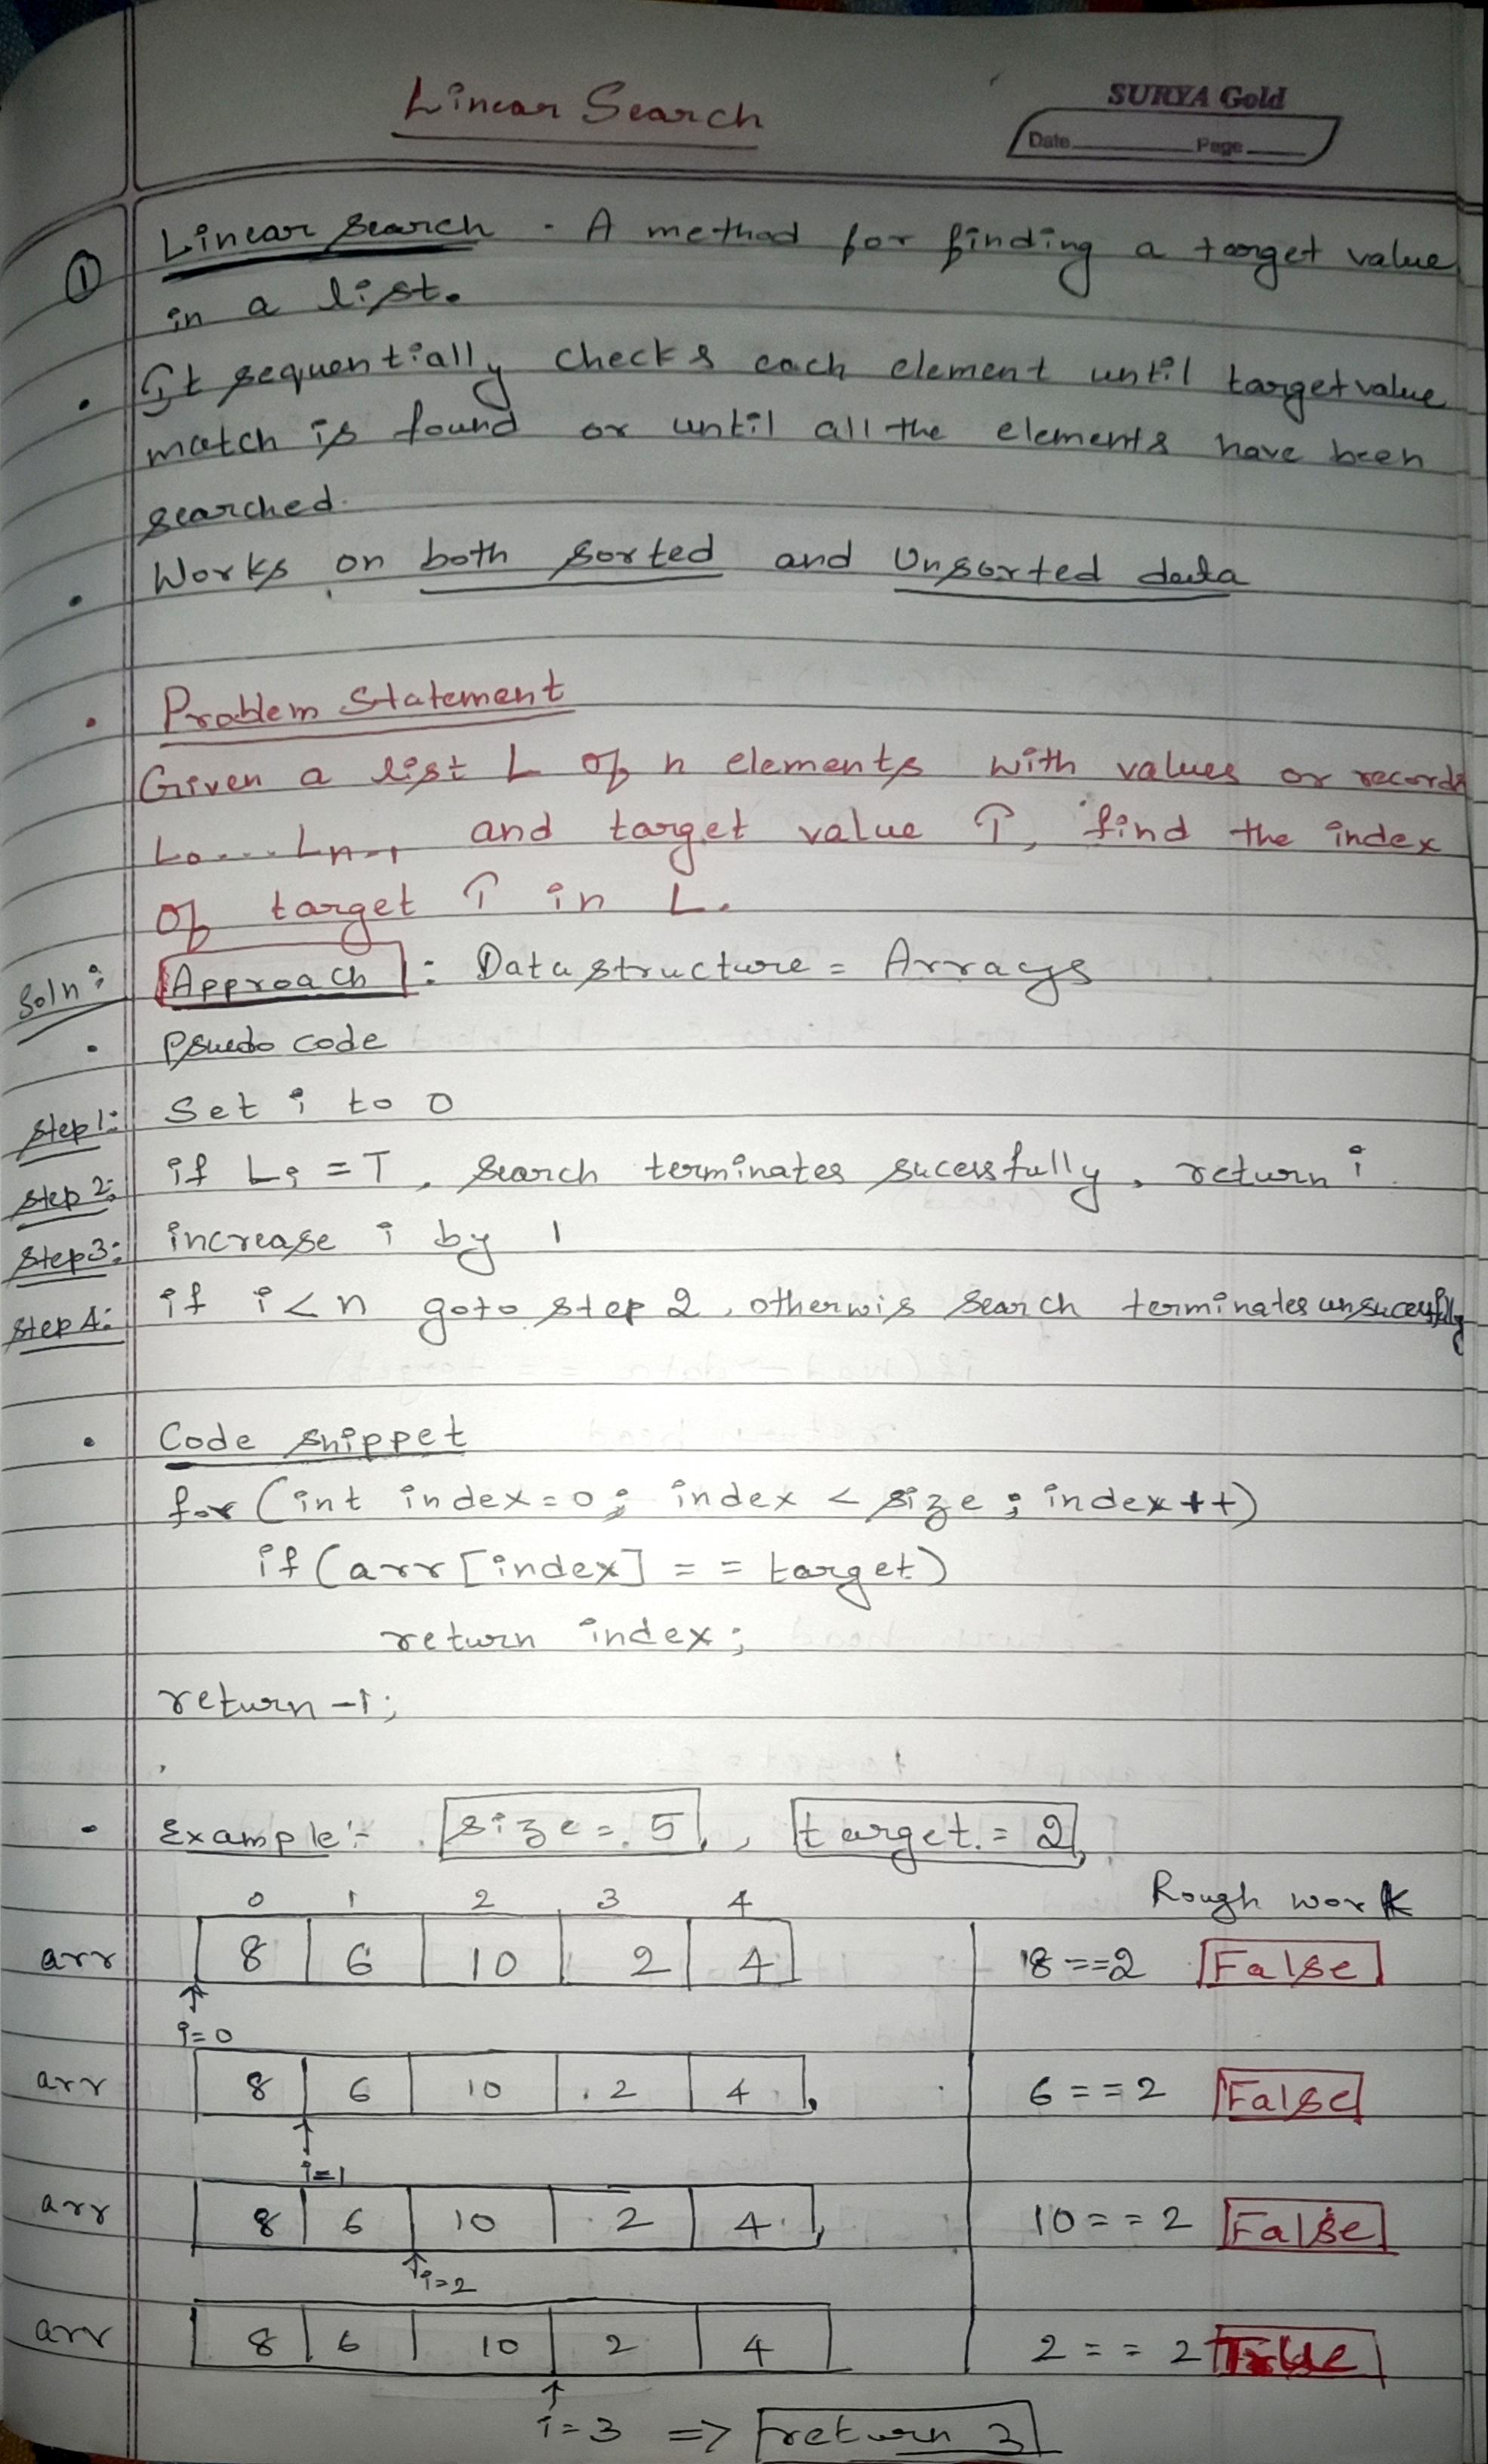 Linear Search
SURYA Gold
Date Page
① Linear Search - A method for finding a target value
in a list.
• It sequentially checks each element until target value
match is found or until all the elements have been
searched.
• Works on both sorted and Unsorted data
• Problem Statement
Given a list L of n elements with values or records
L0...Ln-1 and target value T, find the index
of target T in L.
Soln: Approach : Data structure = Arrays
• Psuedo code
Step 1: Set i to 0
Step 2: if Li = T, Search terminates sucessfully, return i
Step 3: increase i by 1
Step 4: if i < n goto step 2, otherwis search terminates unsucessfully
• Code snippet
for (int index=0; index < size; index++)
if (arr [index] == target)
return index;
return -1;
• Example:- size = 5, target = 2,
Rough work
0 1 2 3 4
arr 8 6 10 2 4 8==2 False
i=0
arr 8 6 10 2 4 6==2 False
i=1
arr 8 6 10 2 4 10==2 False
i=2
arr 8 6 10 2 4 2==2 True
i=3 => return 3